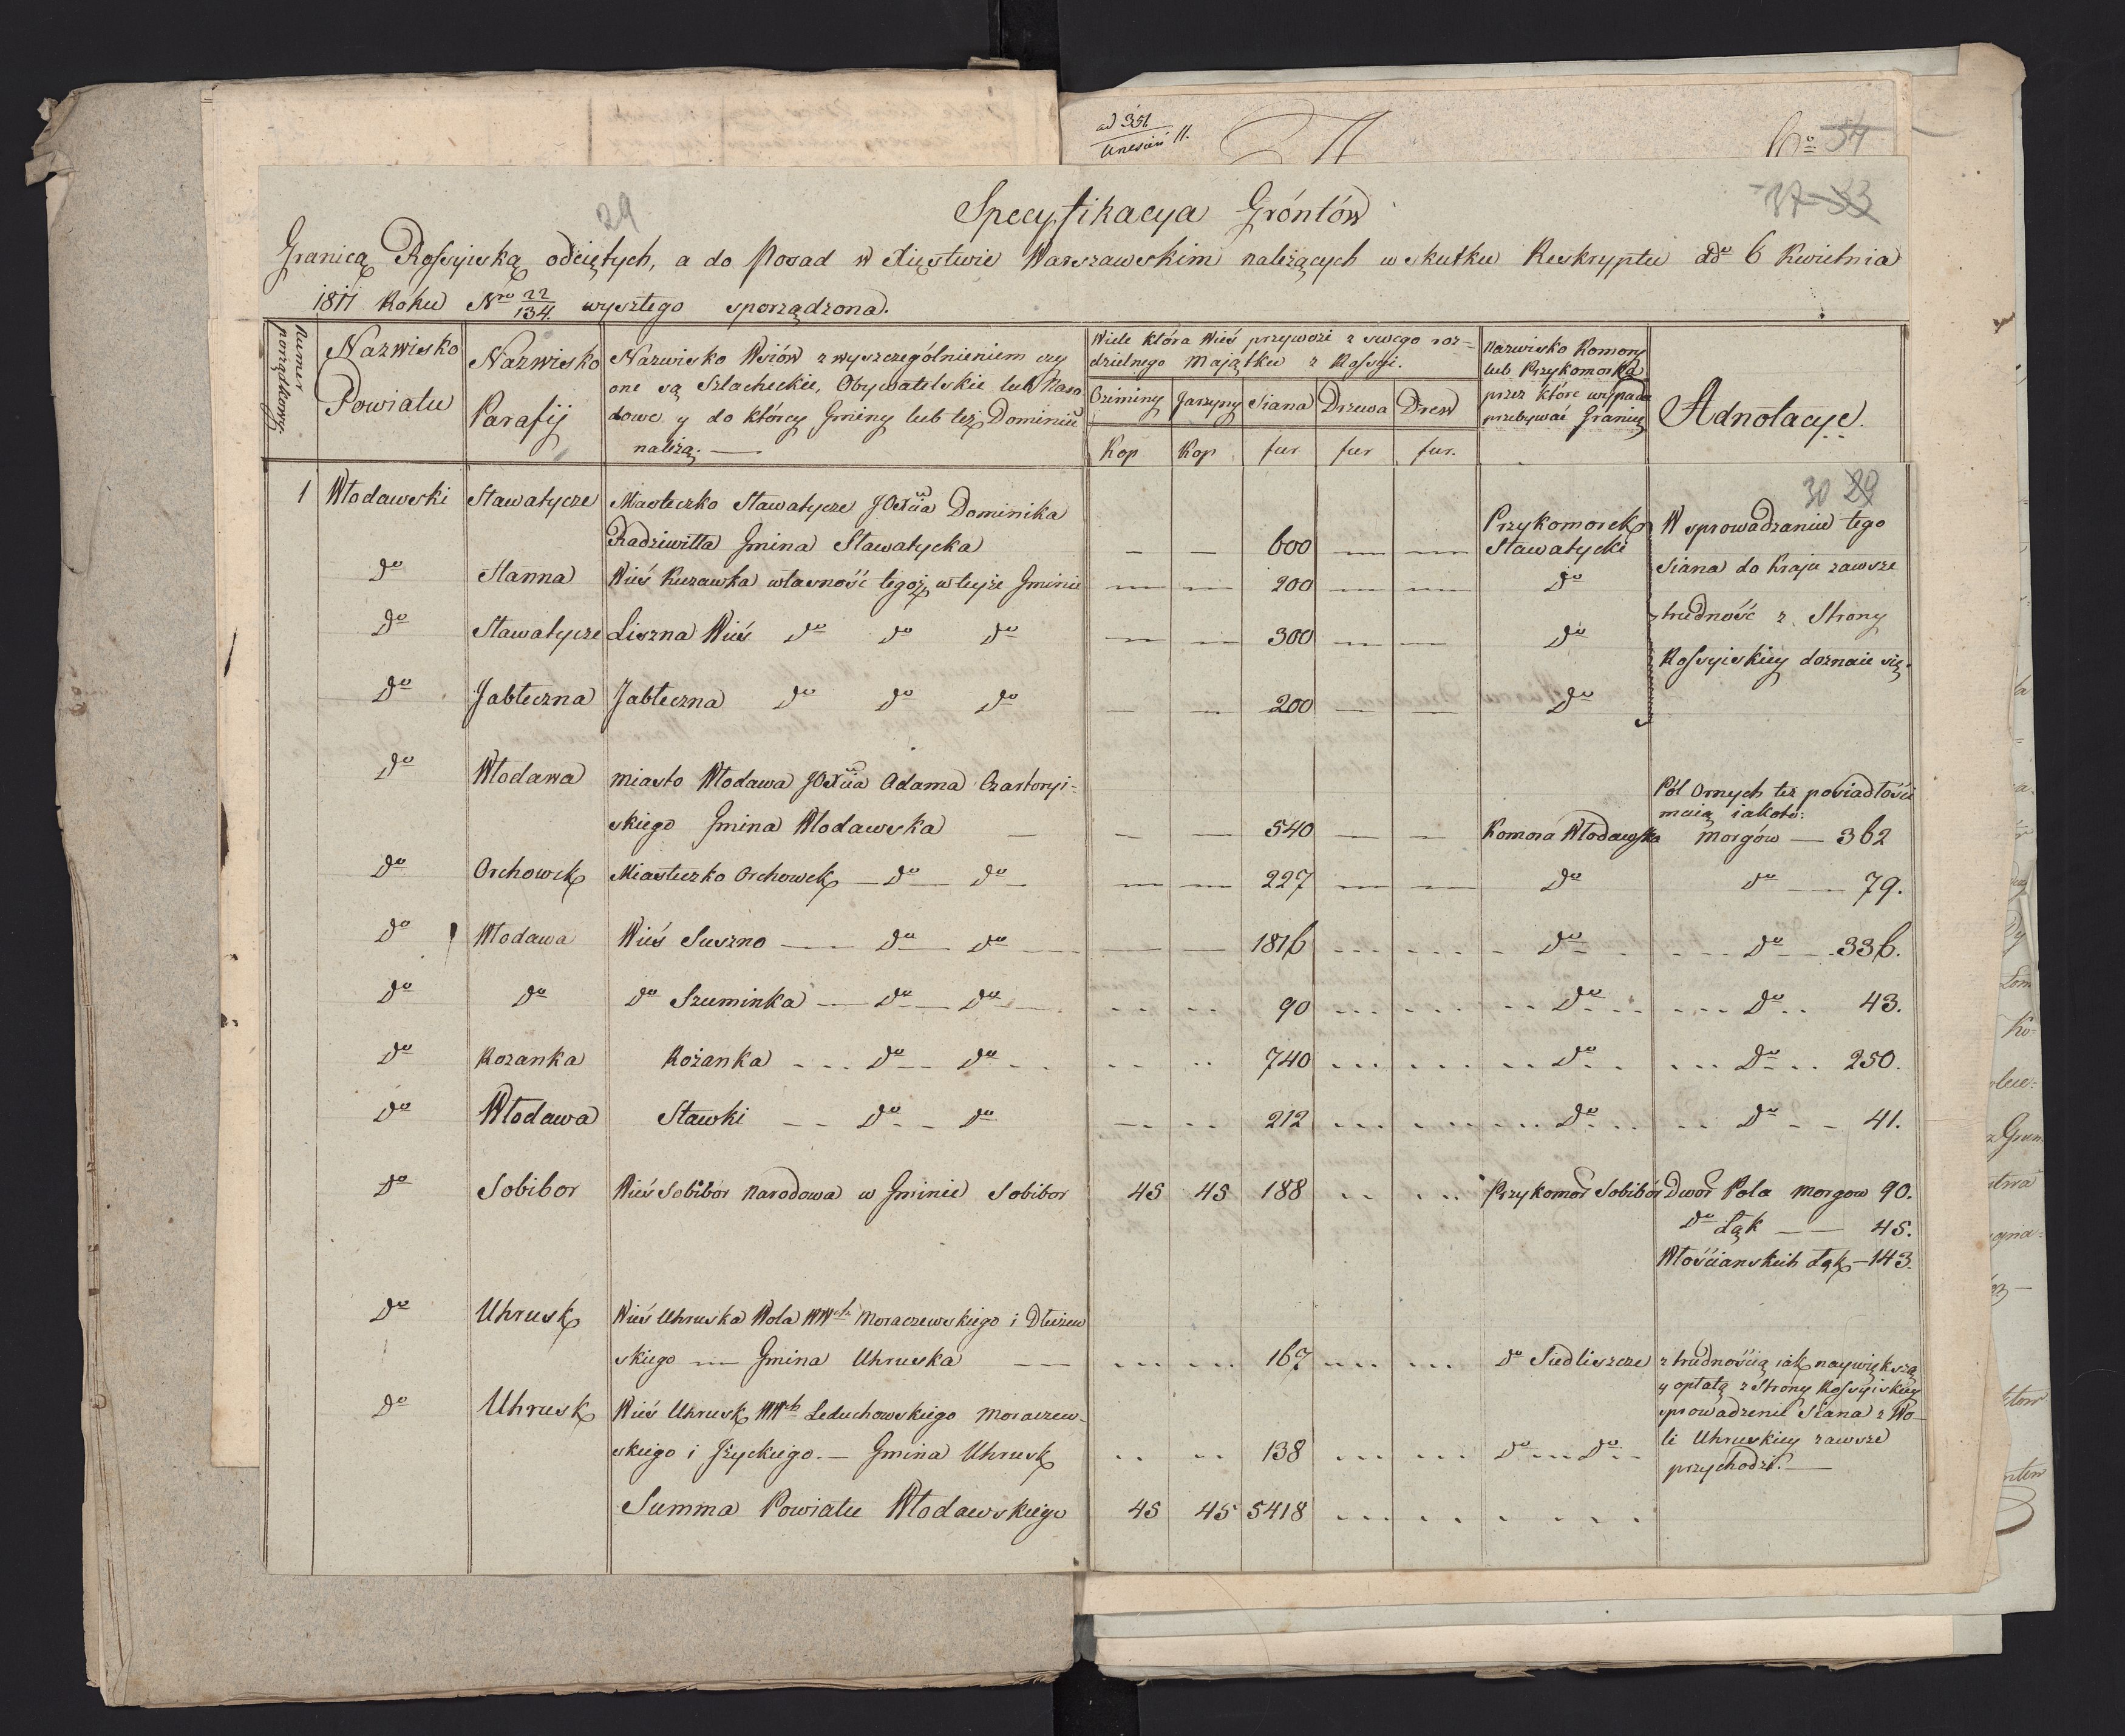 ad 351.
54
29
37 33
Specyfikacya Gróntów
Granicą Rossyiską odciętych, a do Posad w Xięstwie Warszawskim należących w skutku Reskryptu ddo 6 Kwietnia
1811 Roku Nro 22/134. wyszłego sporządzona.
Numer porządkowy.
Nazwisko Powiatu
Nazwisko Parafij
Nazwisko Wsiów z wyszczególnieniem czy
one są Szlacheckie, Obywatelskie lub Naro
dowe y do którey Gminy lub też Dominiu
należą. —
Wiele która Wieś przywozi z swego roz=
dzielnego Majątku z Rossyi.
Oziminy Jarzyny Siana Drzewa Drew
Kop Kop fur fur fur.
Nazwisko Komory
lub Przykomorka
przez które wypada
przebywać Granicę
Adnotacye.
30 29
1 Włodawski Sławatycze Miasteczko Sławatycze JOXcia Dominika
Radziwiłła Gmina Sławatycka — — 600 — — Przykomorek Sławatycki
W sprowadzaniu tego
Siana do Kraju zawsze
trudność z Strony
Rossyiskiey doznaie się.
do Hanna Wieś Kuzawka własność tegoż w teyże Gminie — — 200 — — do
do Sławatycze Liszna Wieś do do do — — 300 — — do
do Jabłeczna Jabłeczna do do do — — 200 — — do
do Włodawa miasto Włodawa JOXcia Adama Czartoryi=
skiego Gmina Włodawska — — — 540 — — Komora Włodawska
Pól Ornych też posiadłości
maią iakoto:
Morgów — 362
do Orchowek Miasteczko Orchowek — do — do — — — 227 — — do do — 79.
do Włodawa Wieś Suszno — do — do — — — 1816 do do 336.
do do do Szuminka — do — do — 90 do do 43.
do Rozanka Rożanka do do 740 do do 250.
do Włodawa Stawki do do 212 do do 41.
do Sobibor Wieś Sobibór Narodowa w Gminie Sobibor 45 45 188 Przykomor Sobibór Dwor Pola Morgow 90.
do Łąk — 45.
Włościanskich Łąk — 143.
do Uhrusk Wieś Uhruska Wola WWch Moraczewskiego i Dłużew
skiego — Gmina Uhruska — 167 do Siedliszcze
z trudnością iak naywiększą
y opłatą z Strony Rossyiskiey
sprowadzenie Siana z Wo-
li Uhruskiey zawsze
przychodzi. —
do Uhrusk Wieś Uhrusk WWch Leduchowskiego Moraczew-
skiego i Iżyckiego. — Gmina Uhrusk 138 do do
Summa Powiatu Włodawskiego 45 45 5418